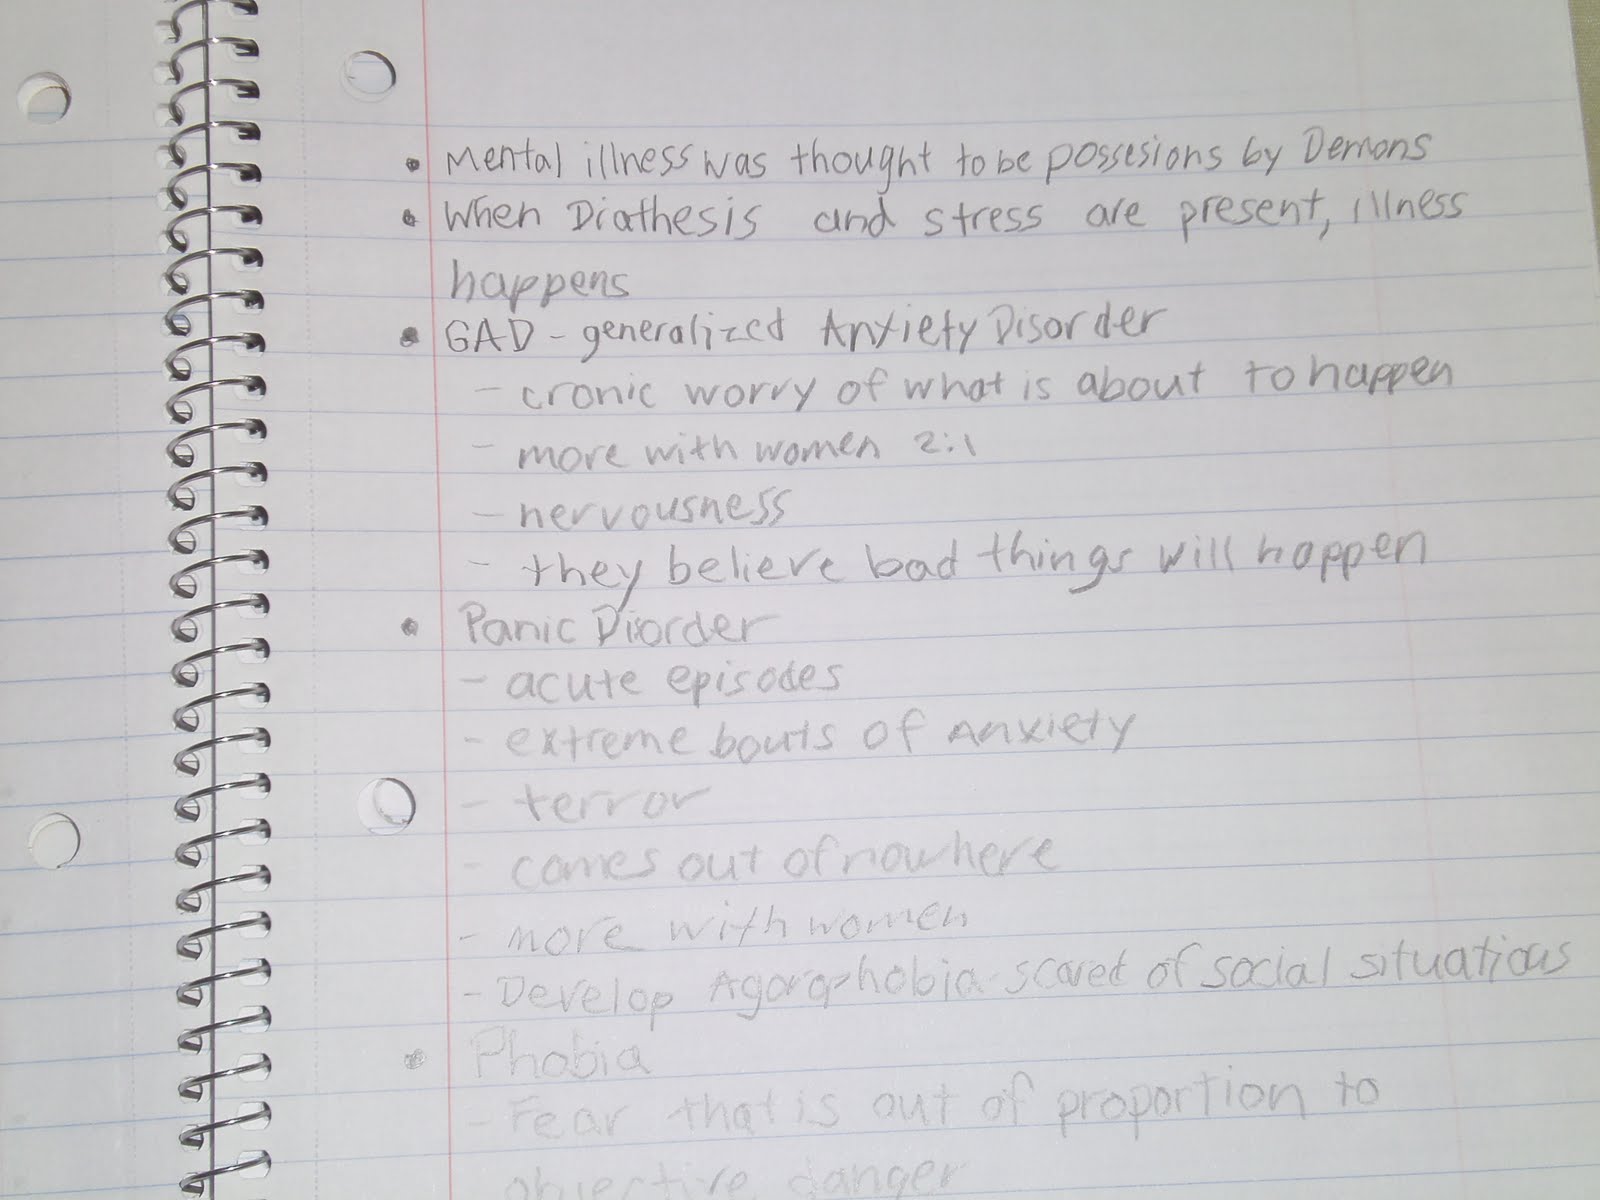 • Mental illness was thought to be possesions by Demons
• When Diathesis and stress are present, illness
happens
• GAD - generalized Anxiety Disorder
- cronic worry of what is about to happen
- more with women 2:1
- nervousness
- they believe bad things will happen
• Panic Diorder
- acute episodes
- extreme bouts of Anxiety
- terror
- comes out of nowhere
- more with women
- Develop Agoraphobia - scared of social situations
• Phobia
- Fear that is out of proportion to
objective danger